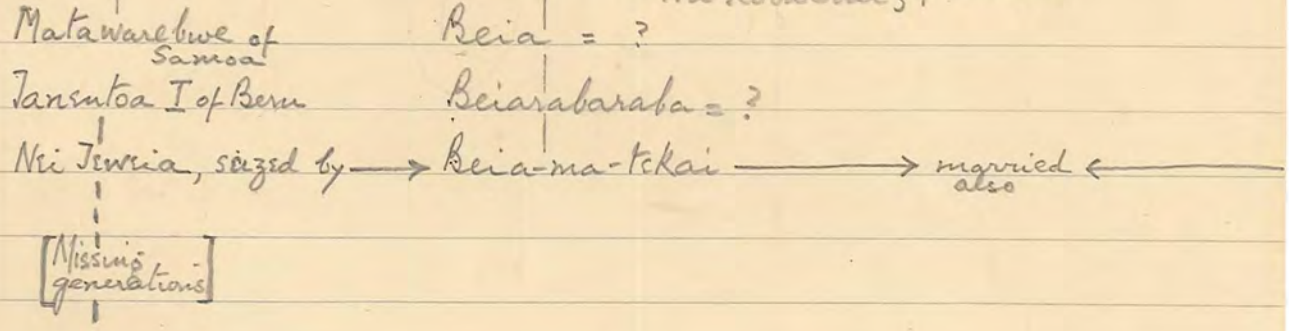 Matawarebwe of Samoa Beia = ?
Tanentoa I of Beru Beiarabaraba = ?
Nei Teweia, seized by → Beia-ma-tekai → married also ←
[Missing generations]